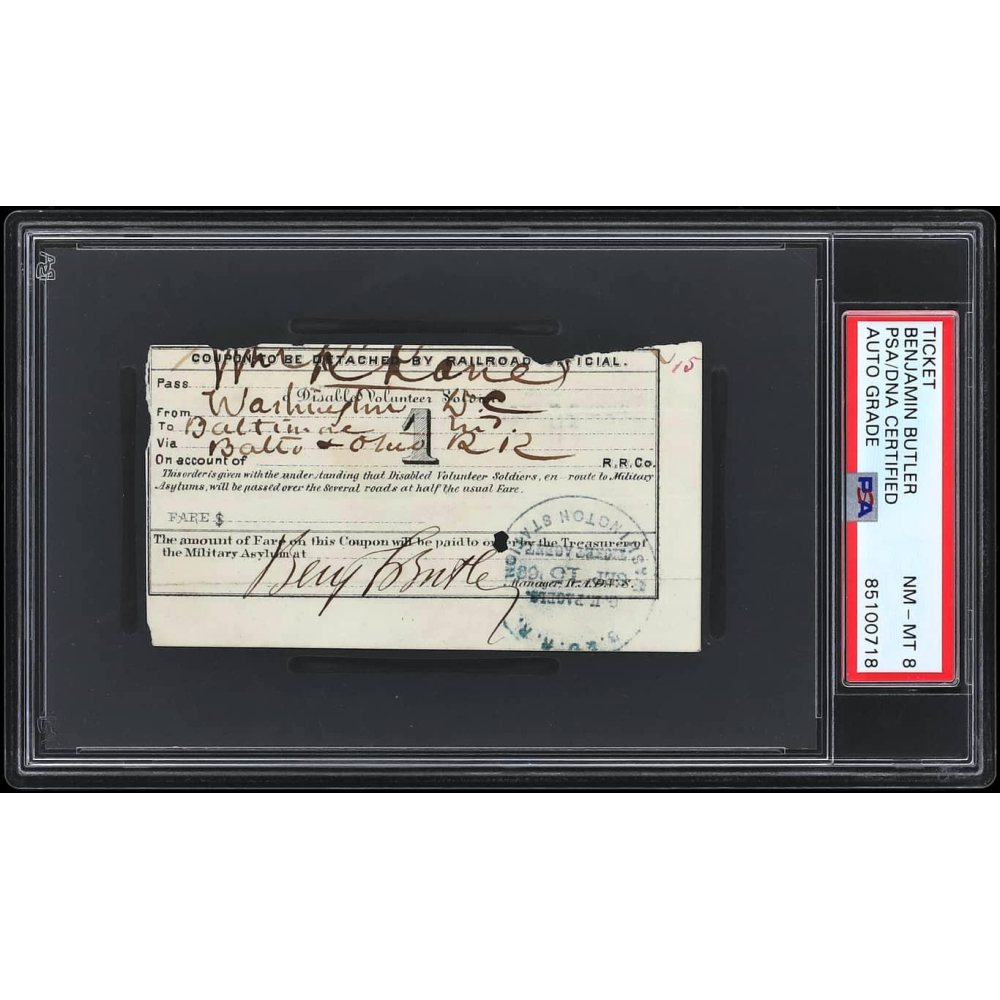 COUPON TO BE DETACHED BY RAILROAD OFFICIAL.
15
Pass Wm K Kane
Disabled Volunteer Soldier
From Washington D.C
To Baltimore Md.
Via Balto & Ohio R R
1
On account of R.R.Co.
This order is given with the understanding that Disabled Volunteer Soldiers, en-route to Military
Asylums, will be passed over the Several roads at half the usual Fare.
FARE $
The amount of Fare on this Coupon will be paid to order by the Treasurer of
the Military Asylum at
Benj F Butler
Manager N.A.D.V.S.
WASHINGTON STATION
TICKET AGENT
B. & O. R. R.
TICKET
BENJAMIN BUTLER
PSA/DNA CERTIFIED
AUTO GRADE
PSA
NM - MT 8
85100718